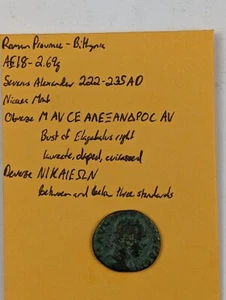 Roman Province - Bithynia
AE18 - 2.69g
Severus Alexander 222-235 AD
Nicaea Mint
Obverse M AVCE AΛEΞANΔPOC AV
Bust of Elagabalus right
laureate, draped, cuirassed
Reverse NIKAIEΩN
Between and below three standards